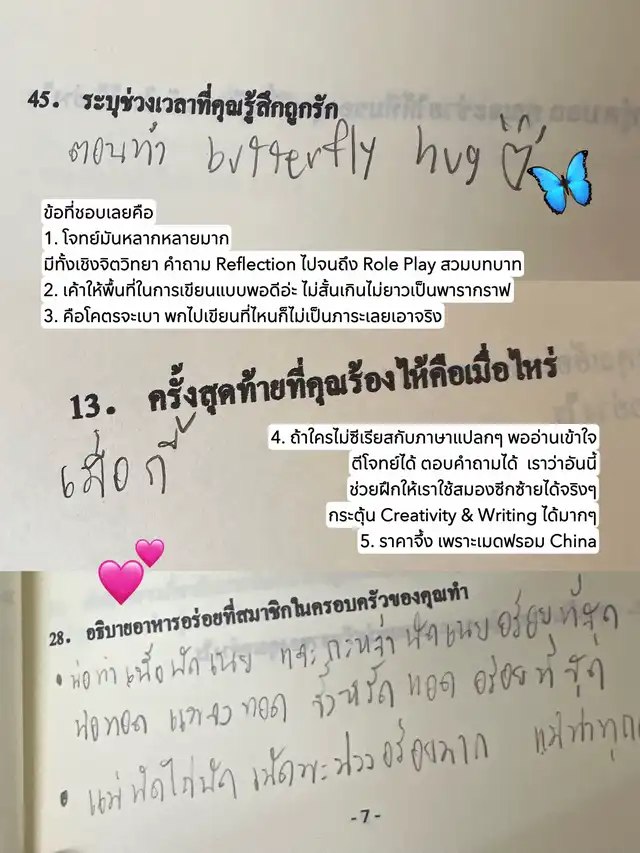 45. ระบุช่วงเวลาที่คุณรู้สึกถูกรัก
ตอนทำ butterfly hug
ข้อที่ชอบเลยคือ
1. โจทย์มันหลากหลายมาก
มีทั้งเชิงจิตวิทยา คำถาม Reflection ไปจนถึง Role Play สวมบทบาท
2. เค้าให้พื้นที่ในการเขียนแบบพอดีอ่ะ ไม่สั้นเกินไม่ยาวเป็นพารากราฟ
3. คือโคตรจะเบา พกไปเขียนที่ไหนก็ไม่เป็นภาระเลยเอาจริง
13. ครั้งสุดท้ายที่คุณร้องไห้คือเมื่อไหร่
เมื่อกี้
4. ถ้าใครไม่ซีเรียสกับภาษาแปลกๆ พออ่านเข้าใจ
ตีโจทย์ได้ ตอบคำถามได้ เราว่าอันนี้
ช่วยฝึกให้เราใช้สมองซีกซ้ายได้จริงๆ
กระตุ้น Creativity & Writing ได้มากๆ
5. ราคาจึ้ง เพราะเมดฟรอม China
28. อธิบายอาหารอร่อยที่สมาชิกในครอบครัวของคุณทำ
• พ่อทำเนื้อผัดเนย และกะหล่ำผัดเนยอร่อยที่สุด
พ่อทอด ทอด อร่อยที่สุด
• แม่ผัดไก่ผัดเม็ดมะม่วงอร่อยมาก แม่ทำทุก
-7-